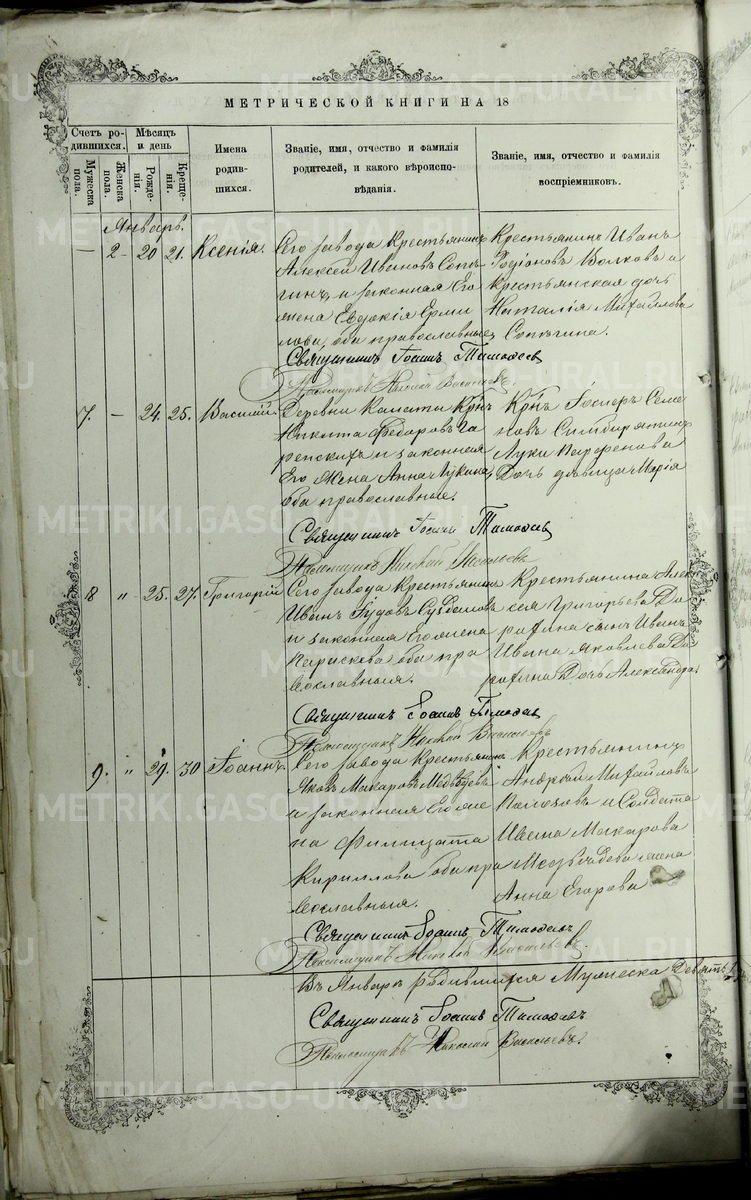 МЕТРИЧЕСКОЙ КНИГИ НА 18
Счетъ ро-
дившихся.
Мѣсяцъ
и день
Мужеска
пола.
Женска
пола.
Рожде-
нія.
Креще-
нія.
Имена
родив-
шихся.
Званіе, имя, отчество и фамилія
родителей, и какого вѣроиспо-
вѣданія.
Званіе, имя, отчество и фамилія
воспріемниковъ.
Январь.
— 2 - 20 21. Ксенія.
Сего завода Крестьянинъ
Алексей Ивановъ
и законная Его
жена Евдокія Ерми
лова, оба православные,
Крестьянинъ Иванъ
Родіоновъ Волковъ и
крестьянская дочь
Наталія Михайлова
Священникъ Іоаннъ Тимофеев
Псаломщикъ Николай Васильевъ.
7. — 24. 25. Василій.
Деревни Крнъ
Никита Федоровъ
и законная
Его Жена Анна Лукина,
оба православные.
Крнъ Семе
новъ
Луки Парфенова
Дочь девица Марія
Священникъ Іоаннъ Тимофеев
Псаломщикъ Николай Васильевъ
8 „ 25. 27. Григорій
Сего завода Крестьянинъ
Иванъ
и законная Его жена
Параскева оба пра
вославныя.
Крестьянина Алек
сея Григорьева До
рофина сынъ Иванъ
Ивана Яковлева До
рофина Дочь Александра.
Священникъ Іоаннъ Тимофеев
Псаломщикъ Николай Васильевъ
9. „ 29. 30 Іоаннъ.
Сего завода Крестьянинъ
Яковъ Макаровъ Медведевъ
и законная Его же
на Филицата
Кириллова оба пра
вославныя.
Крестьянинъ
Андрей Михайловъ
и Солдата
Ивана Макарова
Медведева жена
Анна Егорова
Священникъ Іоаннъ Тимофеевъ
Псаломщикъ Николай Васильевъ
Въ Январе родившихся Мужеска Девять
Священникъ Іоаннъ Тимофеевъ
Псаломщикъ Николай Васильевъ.
METRIKI.GASO-URAL.RU